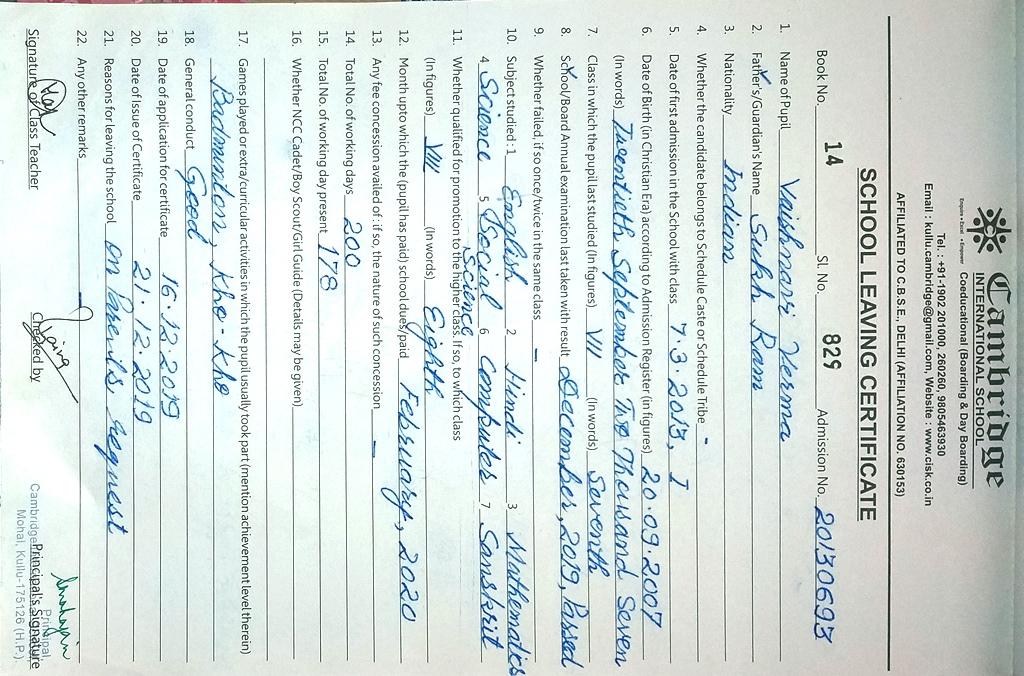 Cambridge
INTERNATIONAL SCHOOL
Enquire • Excel • Empower
Coeducational (Boarding & Day Boarding)
Tel. : +91-1902 201000, 260260, 9805463930
Email : kullu.cambridge@gmail.com, Website : www.cisk.co.in
AFFILIATED TO C.B.S.E., DELHI (AFFILIATION NO. 630153)
SCHOOL LEAVING CERTIFICATE
Book No. 14 Sl. No. 829 Admission No. 20130693
1. Name of Pupil Vaishnavi Verma
2. Father's/Guardian's Name Sukh Ram
3. Nationality Indian
4. Whether the candidate belongs to Schedule Caste or Schedule Tribe -
5. Date of first admission in the School with class 7.3.2013, I
6. Date of Birth (in Christian Era) according to Admission Register (in figures) 20.09.2007
(In words) Twentieth September Two Thousand Seven
7. Class in which the pupil last studied (In figures) VII (In words) Seventh
8. School/Board Annual examination last taken with result December, 2019, Passed
9. Whether failed, if so once/twice in the same class -
10. Subject studied : 1 English 2 Hindi 3 Mathematics
4 Science 5 Social Science 6 Computer 7 Sanskrit
11. Whether qualified for promotion to the higher class. If so, to which class
(In figures) VIII (In words) Eighth
12. Month upto which the (pupil has paid) school dues/paid February, 2020
13. Any fee concession availed of : if so, the nature of such concession -
14. Total No. of working days 200
15. Total No. of working day present 178
16. Whether NCC Cadet/Boy Scout/Girl Guide (Details may be given)
17. Games played or extra/curricular activities in which the pupil usually took part (mention achievement level therein)
Badminton, Kho-Kho
18. General conduct Good
19. Date of application for certificate 16.12.2019
20. Date of Issue of Certificate 21.12.2019
21. Reasons for leaving the school on Parents request
22. Any other remarks -
Signature of Class Teacher Checked by Principal's Signature
Principal,
Cambridge
Mohal, Kullu-175126 (H.P.)